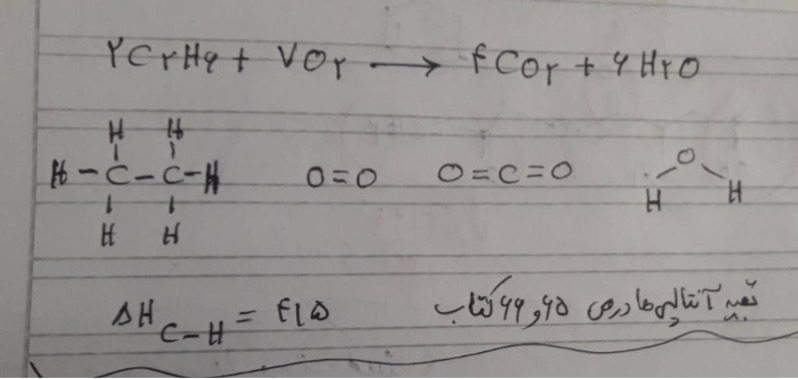 ۲C۲H۶ + ۷O۲ → ۴CO۲ + ۶H۲O
H H
H-C-C-H O=O O=C=O O
H H H H
ΔH C-H = ۴۱۵ بقیه آنتالپی ها درص ۶۵ و ۶۶ کتاب